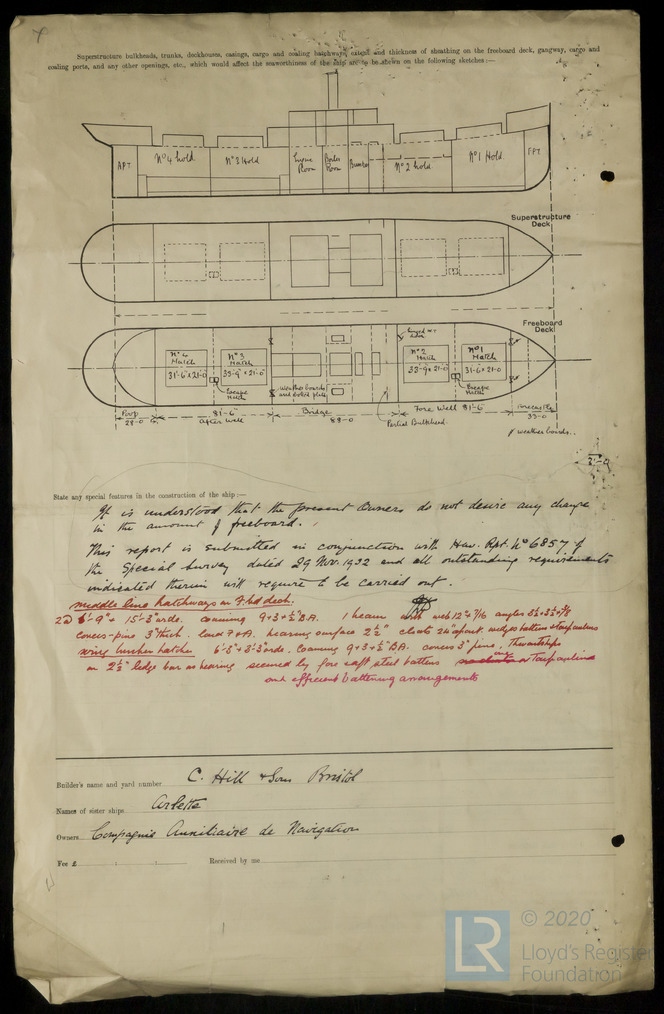 7
Superstructure bulkheads, trunks, deckhouses, casings, cargo and coaling hatchways, extent and thickness of sheathing on the freeboard deck, gangway, cargo and
coaling ports, and any other openings, etc., which would affect the seaworthiness of the ship are to be shown on the following sketches:—
A.P.T. No 4 hold No 3 Hold Engine Room Boiler Room Bunker No 2 hold No 1 Hold F.P.T.
Superstructure
Deck
Freeboard
Deck
No 4 Hatch 31'-6" x 21'-0
No 3 Hatch 33-9" x 21'-0"
No 2 Hatch 33-9 x 21-0
No 1 Hatch 31-6 x 21-0
Escape Hatch
Weather boards and bolted plate
W.T. door
Escape Hatch
Poop 28-0
81'-6" After Well
Bridge 88-0
Partial Bulkhead
Fore Well 81'-6"
Forecastle 33-0
weather boards.
State any special features in the construction of the ship :—
It is understood that the present Owners do not desire any change
in the amount of freeboard.
This report is submitted in conjunction with Haw. Rpt. No 6857 of
the Special Survey dated 29 Nov 1932 and all outstanding requirements
indicated therein will require to be carried out.
middle line hatchways on F.bd deck.
15'-3" coaming 9 + 3 + ½" B.A. 1 beam with web 12" x 7/16 angles
covers pine 3" thick. bearing surface 2½" cleats 24" apart. wedges battens & tarpaulins
wing bunker hatches 6'-3" + 3'-3" coaming 9 + 3 + ½" B.A. covers 3" pine, Thwartships
on 2½" ledge bar as bearing secured by fore & aft steel battens tarpaulins
and efficient battening arrangements
Builder's name and yard number C. Hill & Sons Bristol
Names of sister ships Arlette
Owners Compagnie Auxiliaire de Navigation
Fee £ : : Received by me
LR
© 2020
Lloyd's Register
Foundation